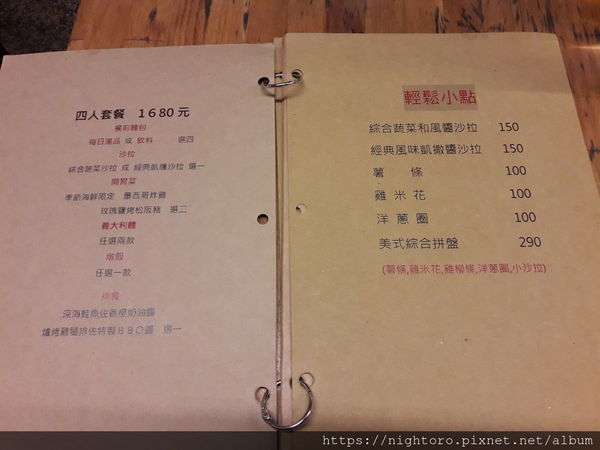 四人套餐 1680元
餐前麵包
每日湯品 或 飲料 選四
沙拉
綜合蔬菜沙拉 或 經典凱撒沙拉 選一
開胃菜
季節海鮮限定 墨西哥炸雞
玫瑰鹽烤松阪豬 選二
義大利麵
任選兩款
燉飯
任選一款
排餐
深海鮭魚佐香橙奶油醬
爐烤雞腿排佐特製BBQ醬 選一
輕鬆小點
綜合蔬菜和風醬沙拉 150
經典風味凱撒醬沙拉 150
薯條 100
雞米花 100
洋蔥圈 100
美式綜合拼盤 290
(薯條,雞米花,雞柳條,洋蔥圈,小沙拉)
https://nightoro.pixnet.net/album